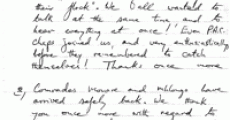 their flock". We all wanted to
talk at the same time and to
hear everything at once! Even PAC
chaps joined us, and very enthusiastically,
before they remembered to catch
themselves! Thanks once more
2, Comrades and have
arrived safely back. We thank
you once more with regard to